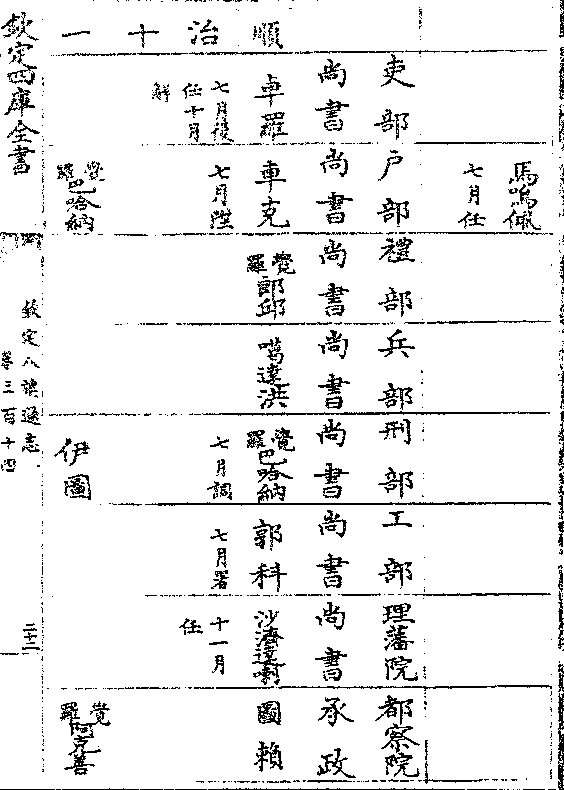 馬嗚佩
七月任
吏部
尚書
卓羅
七月復
任十月
解
戶部
尚書
車克
七月陞
覺羅巴哈納
禮部
尚書
覺羅郎邱
兵部
尚書
噶達洪
刑部
尚書
覺羅巴哈納
七月調
伊圖
工部
尚書
郭科
七月署
理藩院
尚書
沙濟達喇
十一月
任
都察院
承政
圖賴
覺羅阿克善
順治十一
欽定四庫全書
欽定八旗通志
卷三百十四
二十三